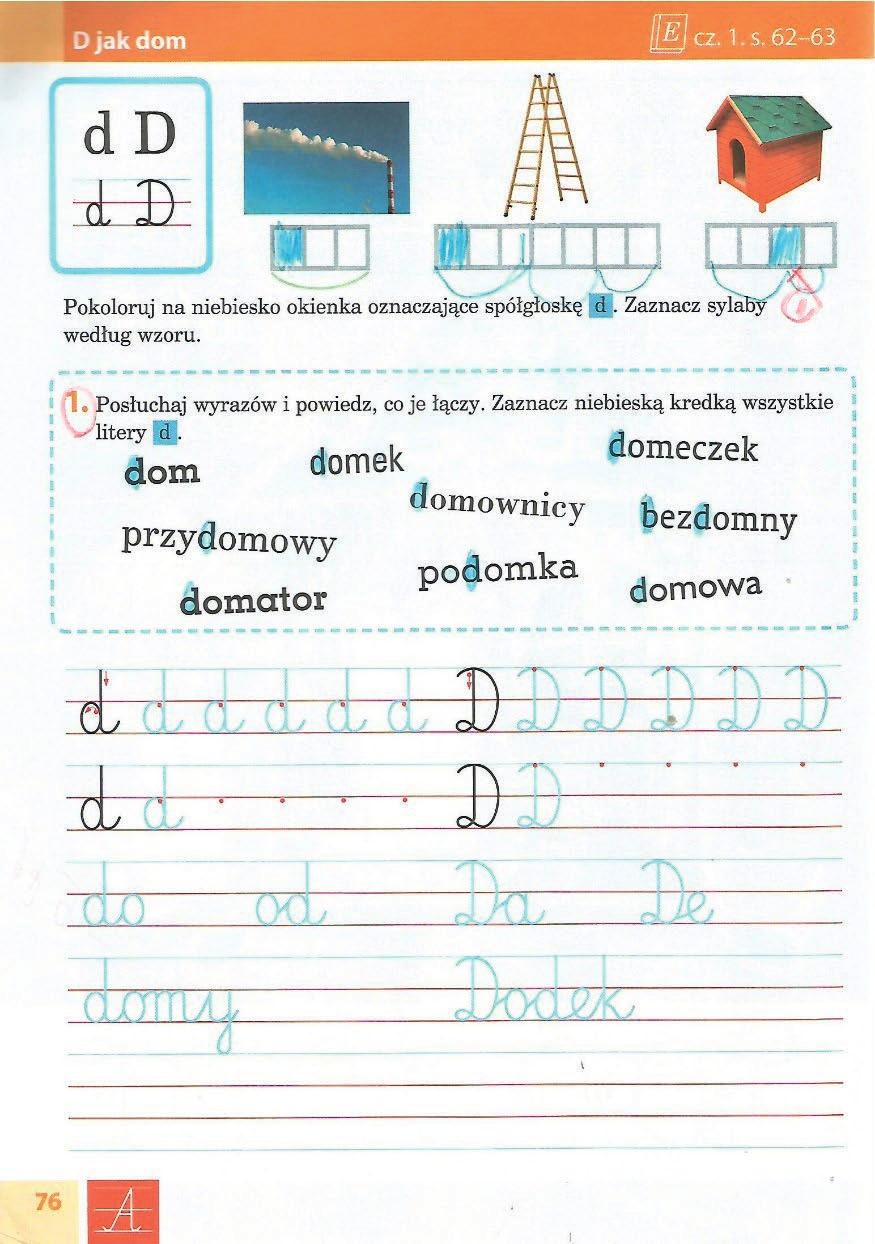 D jak dom
E cz. 1. s. 62–63
d D
d D
Pokoloruj na niebiesko okienka oznaczające spółgłoskę d. Zaznacz sylaby
według wzoru.
1. Posłuchaj wyrazów i powiedz, co je łączy. Zaznacz niebieską kredką wszystkie
litery d.
dom domek domeczek
domownicy bezdomny
przydomowy
podomka
domator domowa
d d d d d d D D D D D D
d d D D
do od Da De
domy Dodek
76 A